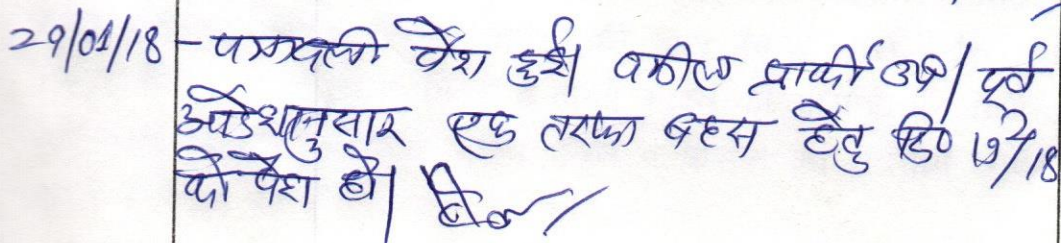 29/01/18 - पत्रावली पेश हुई। वकील प्रार्थी उप। पूर्व
आदेशानुसार एक तरफा बहस हेतु दि०
को पेश हो।